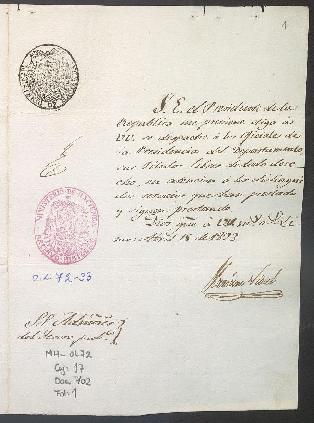 1
S. E. el Presidente de la
Republica me previene diga à
VV. se despache à los oficiales de
la Presidencia del Departamento
sus titulos libres de todo dere-
cho, en atencion à los distingui-
dos servicios que han prestado
y siguen prestando.
Dios gue. à VV. m. a. Li
ma Abril 18 de 1833
MINISTERIO DE HACIENDA
O.L. 72-33
SS. Admores
del Tesoro pub.
MH-OL72
Caj: 17
Doc: 702
Fol: 1